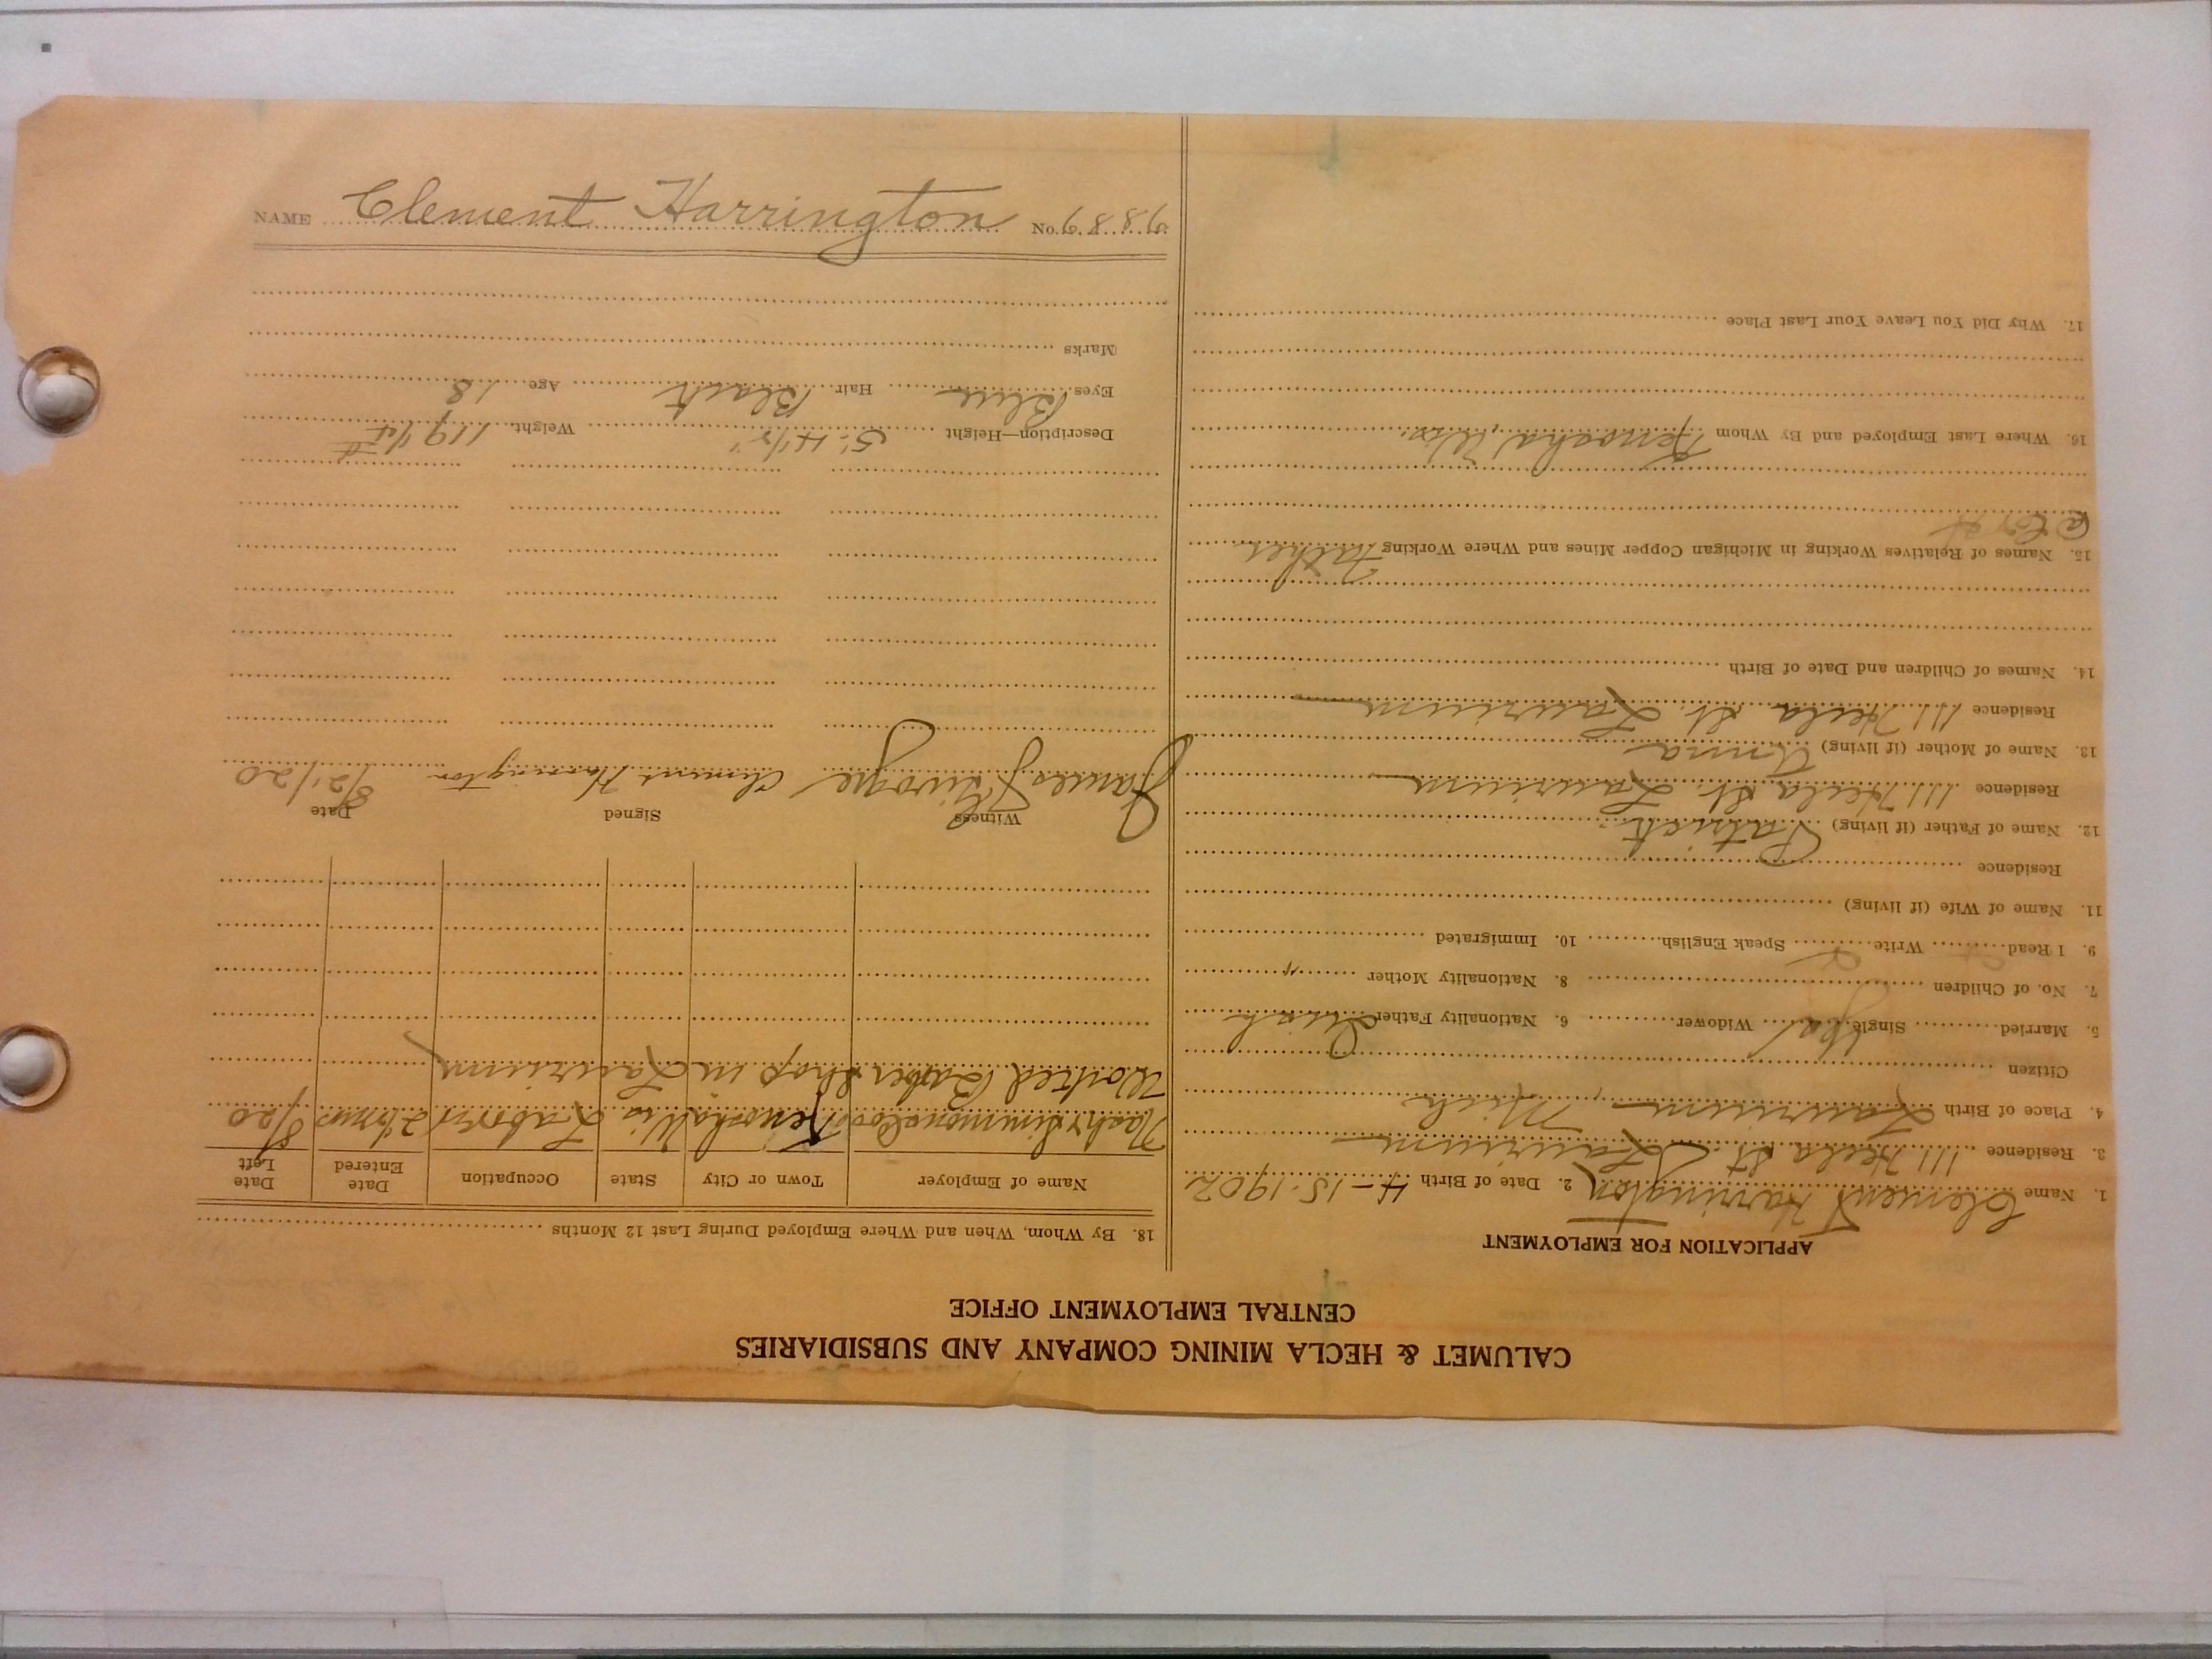 CALUMET & HECLA MINING COMPANY AND SUBSIDIARIES
CENTRAL EMPLOYMENT OFFICE
APPLICATION FOR EMPLOYMENT
1. Name Clement Harrington 2. Date of Birth 4-15-1902
3. Residence 111 Hecla St. Laurium
4. Place of Birth Laurium, Mich
Citizen
5. Married Single Yes Widower 6. Nationality Father Irish
7. No. of Children 8. Nationality Mother "
9. I Read Write Speak English 10. Immigrated
11. Name of Wife (if living)
Residence
12. Name of Father (if living) Patrick
Residence 111 Hecla St. Laurium
13. Name of Mother (if living) Anna
Residence 111 Hecla St. Laurium
14. Names of Children and Date of Birth
15. Names of Relatives Working in Michigan Copper Mines and Where Working Father
16. Where Last Employed and By Whom Kenosha, Wis.
17. Why Did You Leave Your Last Place
18. By Whom, When and Where Employed During Last 12 Months
Name of Employer Town or City State Occupation Date Entered Date Left
Simmons Co Kenosha Wis Labor 8/20
Worked Barber Shop in Laurium
Witness Signed Date
James Clement Harrington 8/21/20
Description—Height 5' 4 1/2" Weight 119 1/4 #
Eyes Blue Hair Black Age 18
Marks
NAME Clement Harrington No. 9889